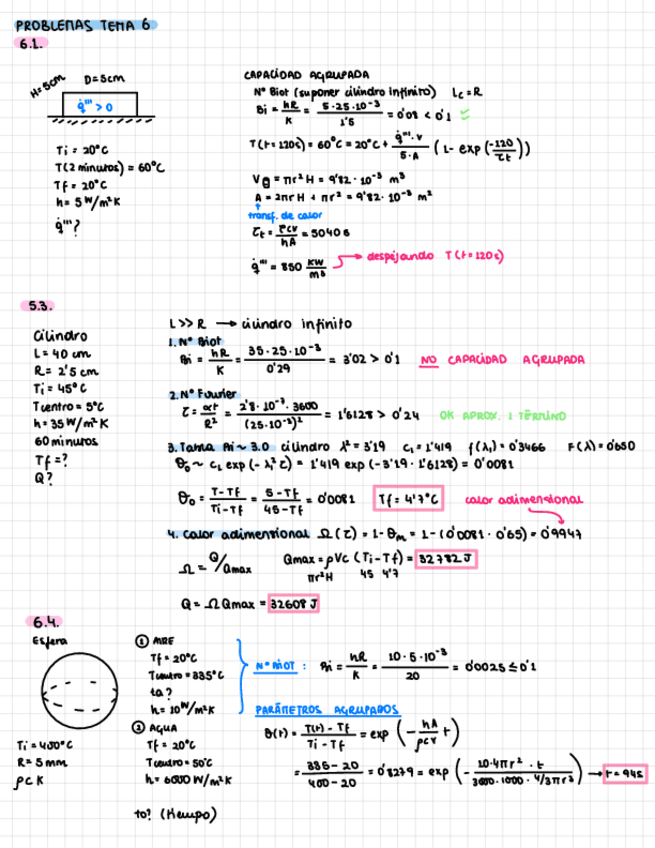 PROBLEMAS TEMA 6
6.1.
H=5cm D=5cm
q̇''' > 0
Ti = 20°C
T(2 minutos) = 60°C
Tf = 20°C
h = 5 W/m²K
q̇'''?
CAPACIDAD AGRUPADA
Nº Biot (suponer cilindro infinito) Lc = R
Bi = hR/K = 5·25·10⁻³/1'5 = 0'08 < 0'1
T(t=120s) = 60°C = 20°C + q̇'''·V/5·A (1 - exp(-120/τt))
V = πr²H = 9'82·10⁻⁵ m³
A = 2πrH + πr² = 9'82·10⁻³ m²
transf. de calor
τt = ρcV/hA = 5040s
q̇''' = 850 KW/m³ → despejando T(t=120s)
5.3.
Cilindro
L = 40 cm
R = 2'5 cm
Ti = 45°C
Tcentro = 5°C
h = 35 W/m²K
60 minutos
Tf = ?
Q?
L >> R → cilindro infinito
1. Nº Biot
Bi = hR/K = 35·25·10⁻³/0'29 = 3'02 > 0'1 NO CAPACIDAD AGRUPADA
2. Nº Fourier
τ = αt/R² = 2'8·10⁻⁷·3600/(25·10⁻³)² = 1'6128 > 0'24 OK APROX. 1 TÉRMINO
3. Tabla Bi ~ 3.0 cilindro λ² = 3'19 c₁ = 1'419 f(λ₁) = 0'3466 F(λ) = 0'650
θ₀ ~ c₁ exp(-λ²τ) = 1'419 exp(-3'19·1'6128) = 0'0081
θ₀ = T-Tf/Ti-Tf = 5-Tf/45-Tf = 0'0081 Tf = 4'7°C calor adimensional
4. Calor adimensional Ω(τ) = 1-θm = 1-(0'0081·0'65) = 0'9947
Ω = Q/Qmax Qmax = ρVc (Ti-Tf) = 32782 J
πr²H 45 4'7
Q = Ω Qmax = 32608 J
6.4.
Esfera
Ti = 400°C
R = 5 mm
ρ c K
① AIRE
Tf = 20°C
Tcentro = 335°C
ta?
h = 10 W/m²K
② AGUA
Tf = 20°C
Tcentro = 50°C
h = 6000 W/m²K
to? (tiempo)
Nº BIOT: Bi = hR/K = 10·5·10⁻³/20 = 0'0025 ≤ 0'1
PARÁMETROS AGRUPADOS
θ(t) = T(t)-Tf/Ti-Tf = exp(-hA/ρcV t)
= 335-20/400-20 = 0'8279 = exp(-10·4πr²·t/3000·1000·4/3πr³) → t = 94s